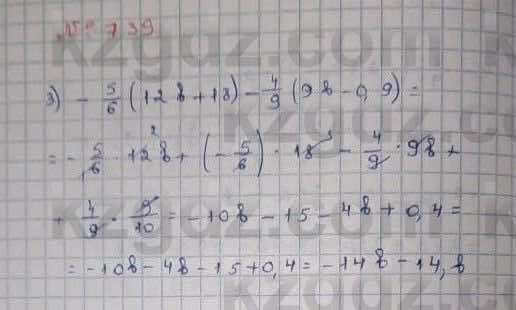 № 739
3) - 5/6 (12b+18) - 4/9 (9b-0,9) =
= - 5/6 · 12b + (- 5/6) · 18 - 4/9 · 9b +
+ 4/9 · 9/10 = -10b - 15 - 4b + 0,4 =
= -10b - 4b - 15 + 0,4 = -14b - 14,6
kzgdz.com